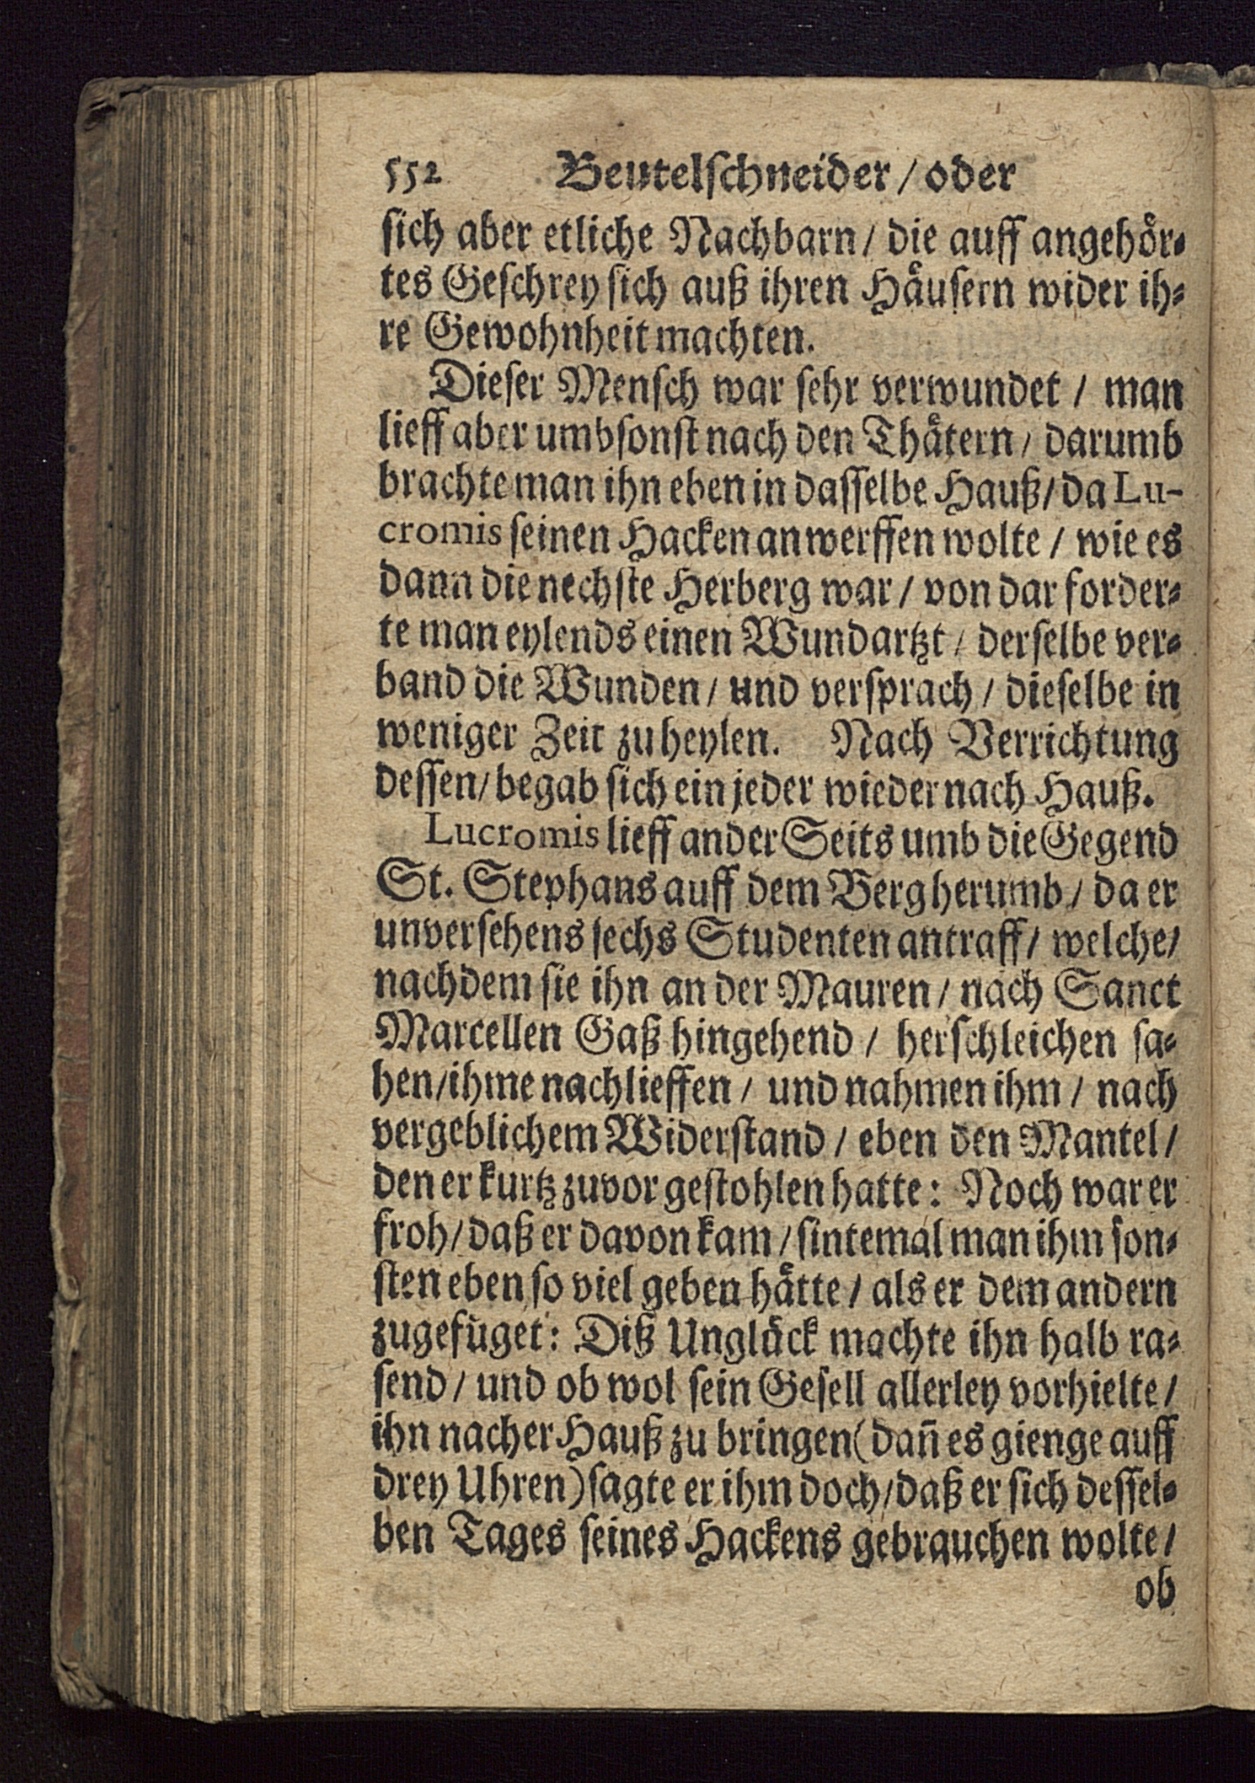 552 Beutelschneider / oder
sich aber etliche Nachbarn / die auff angehör-
tes Geschrey sich auß ihren Häusern wider ih-
re Gewohnheit machten.
Dieser Mensch war sehr verwundet / man
lieff aber umbsonst nach den Thätern / darumb
brachte man ihn eben in dasselbe Hauß / da Lu-
cromis seinen Hacken anwerffen wolte / wie es
dann die nechste Herberg war / von dar forder-
te man eylends einen Wundartzt / derselbe ver-
band die Wunden / und versprach / dieselbe in
weniger Zeit zu heylen. Nach Verrichtung
dessen / begab sich ein jeder wieder nach Hauß.
Lucromis lieff ander Seits umb die Gegend
St. Stephans auff dem Berg herumb / da er
unversehens sechs Studenten antraff / welche /
nachdem sie ihn an der Mauren / nach Sanct
Marcellen Gaß hingehend / herschleichen sa-
hen / ihme nachlieffen / und nahmen ihm / nach
vergeblichem Widerstand / eben den Mantel /
den er kurtz zuvor gestohlen hatte: Noch war er
froh / daß er davon kam / sintemal man ihm son-
sten eben so viel geben hätte / als er dem andern
zugefüget: Diß Unglück machte ihn halb ra-
send / und ob wol sein Gesell allerley vorhielte /
ihn nacher Hauß zu bringen (dañ es gienge auff
drey Uhren) sagte er ihm doch / daß er sich dessel-
ben Tages seines Hackens gebrauchen wolte /
ob